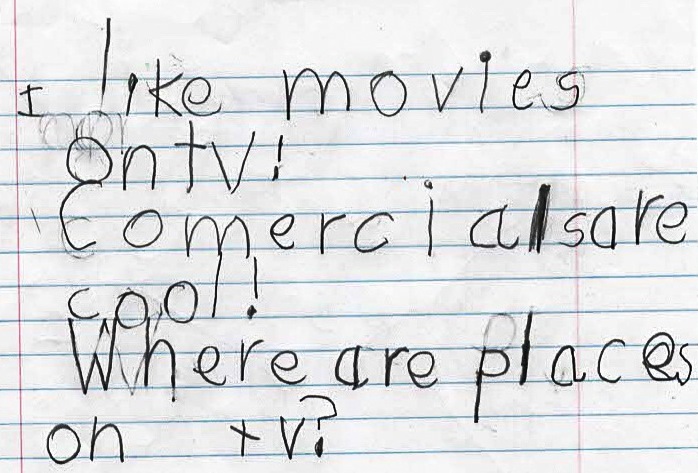 I like movies
on tv!
Comercials are
cool!
Where are places
on tv?